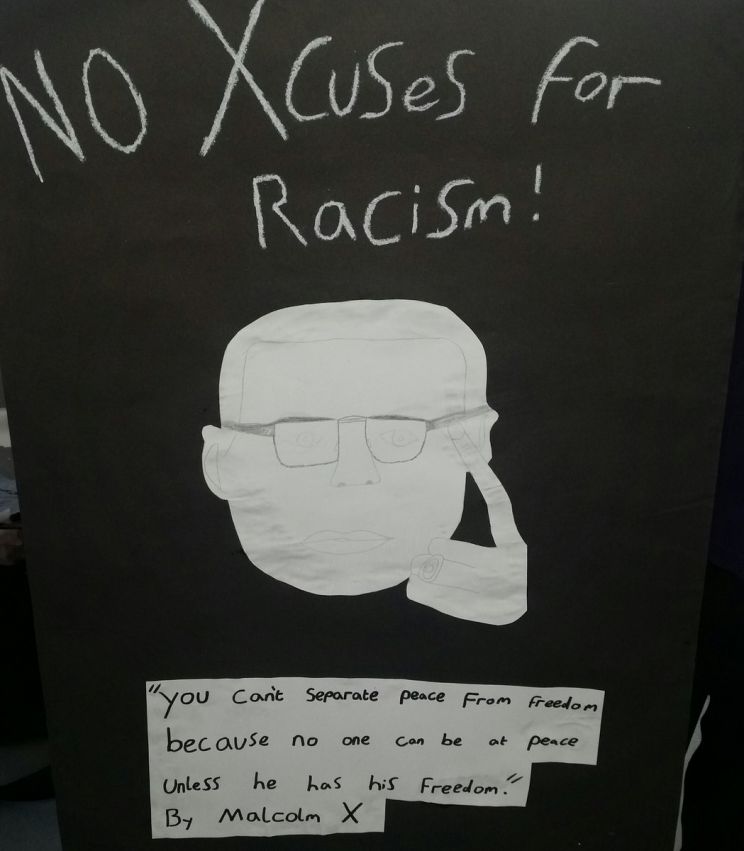 NO Xcuses for
Racism!
"you can't separate peace From freedom
because no one can be at peace
unless he has his Freedom."
By Malcolm X